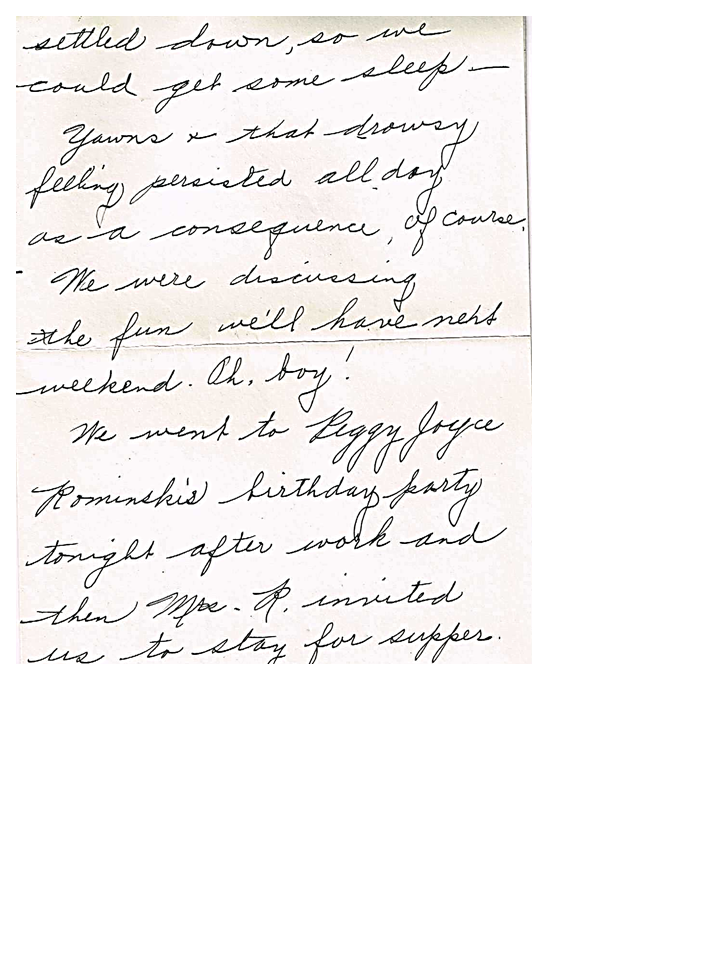 settled down, so we
could get some sleep —
Yawns & that drowsy
feeling persisted all day
as a consequence, of course.
We were discussing
the fun we'll have next
weekend. Oh, boy!
We went to Peggy Joyce
Rominski's birthday party
tonight after work and
then Mrs. R. invited
us to stay for supper.